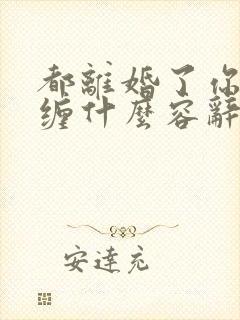 都離婚了你
缠什麼容辭
安達充